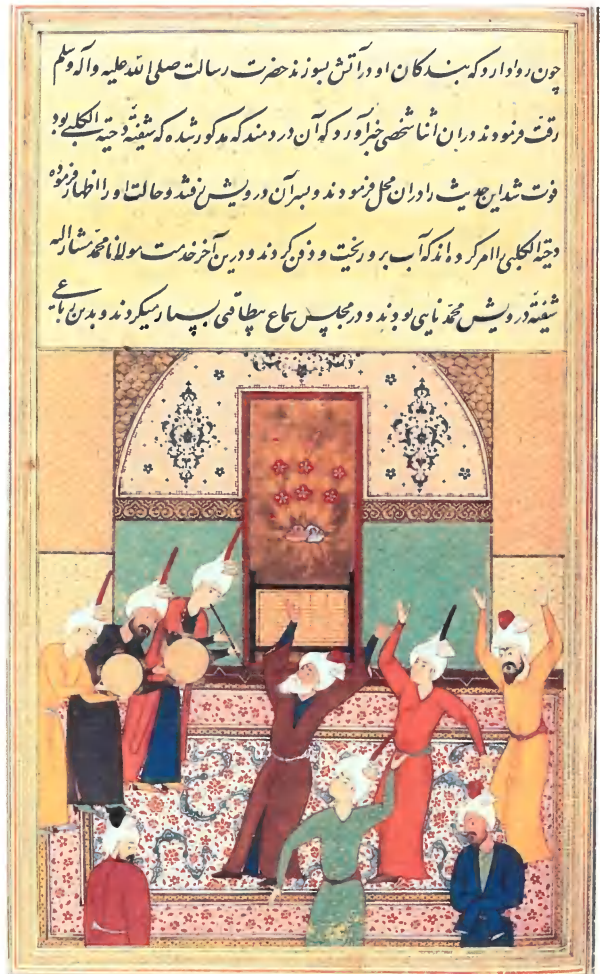 چون روا دارد که بندگان او در آتش بسوزند حضرت رسالت صلی الله علیه وآله وسلم
رقت فرمودند در ان اثنا شخصی خبر آورد که آن دردمند که مذکور شده که شیفتهٔ دحیة الکلبی بود
فوت شد این حدیث را در ان محل فرمودند و بسر آن درویش رفتند و حالت او را اظهار فرموده
دحیة الکلبی را امر کرده اند که آب برو ریخت و دفن کردند و درین آخر خدمت مولانا محمد مشار الیه
شیفتهٔ درویش محمد نایی بودند و در مجلس سماع بیطاقتی بسیار میکردند و بدین رباعی